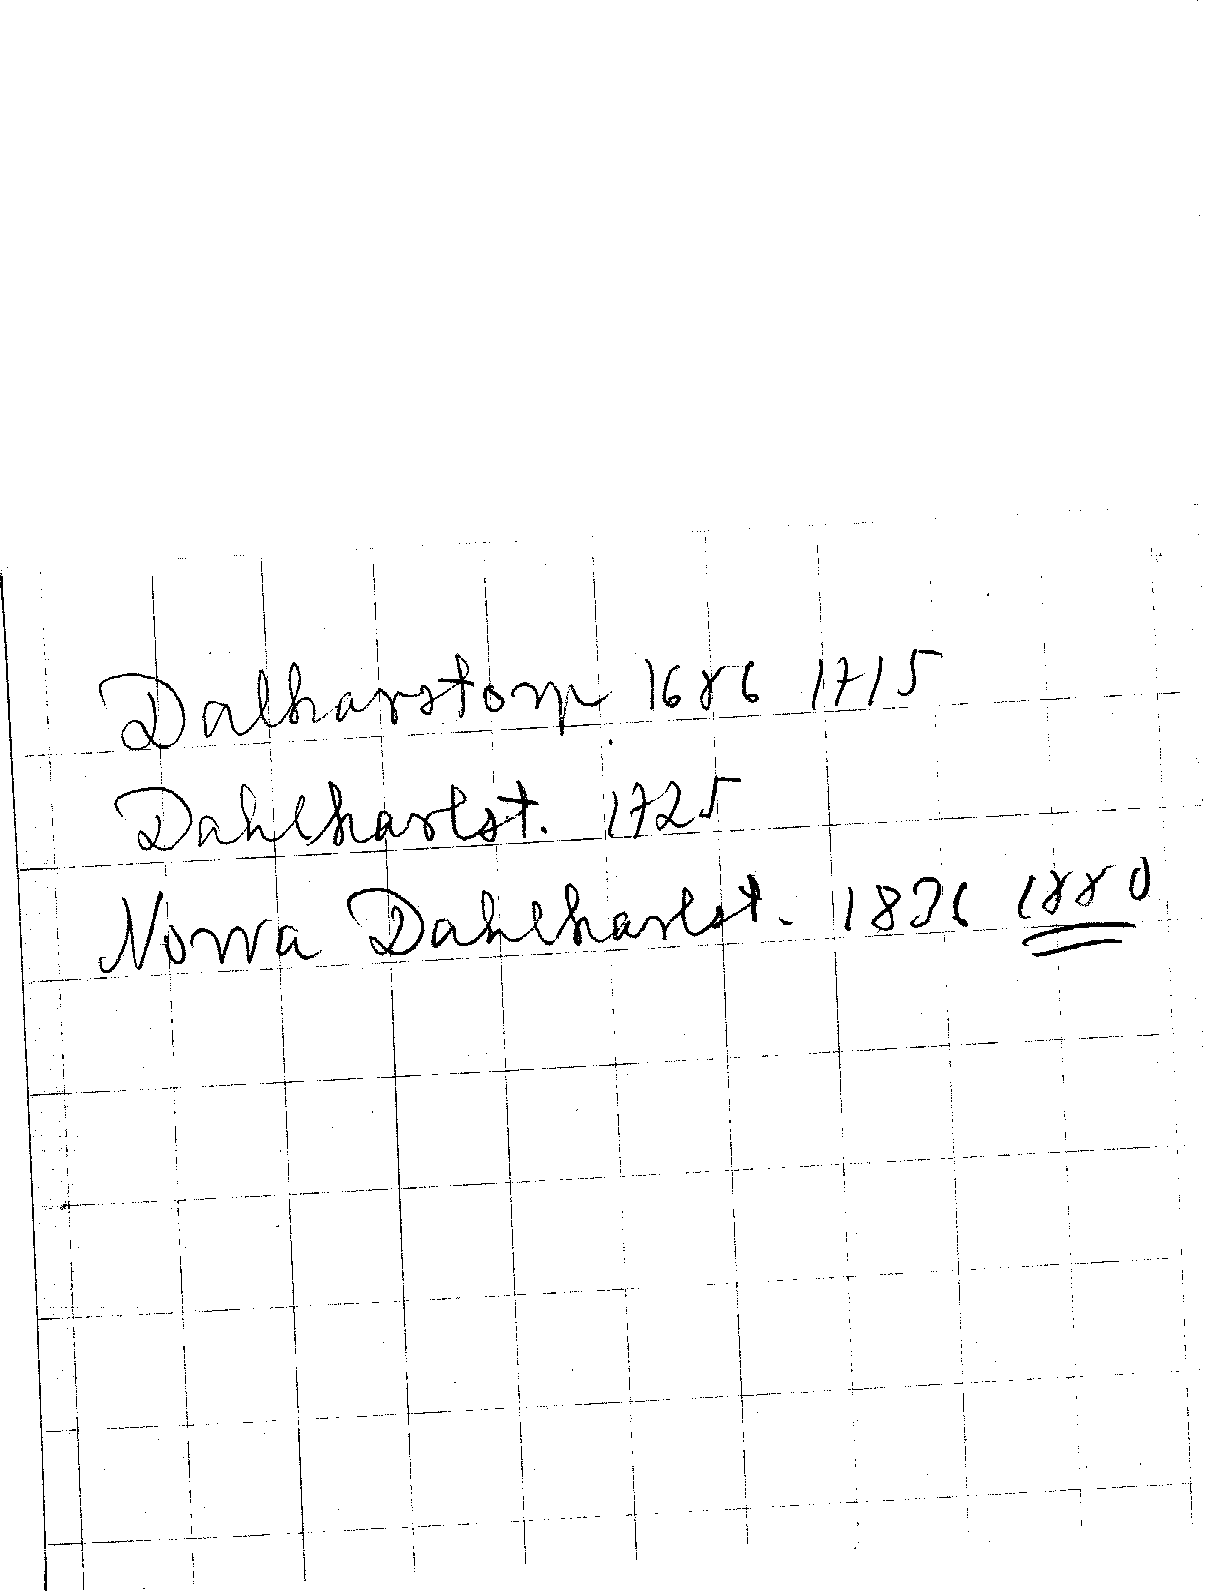 Dalkarstorp 1686 1715
Dahlkarlst. 1725
Norra Dahlkarlst. 1836 1880